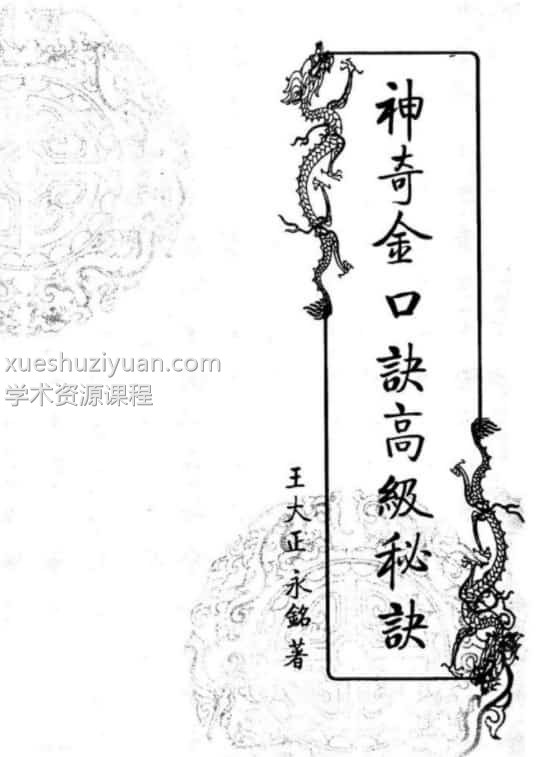 神奇金口訣高級秘訣
王大正 永銘著
xueshuziyuan.com
学术资源课程